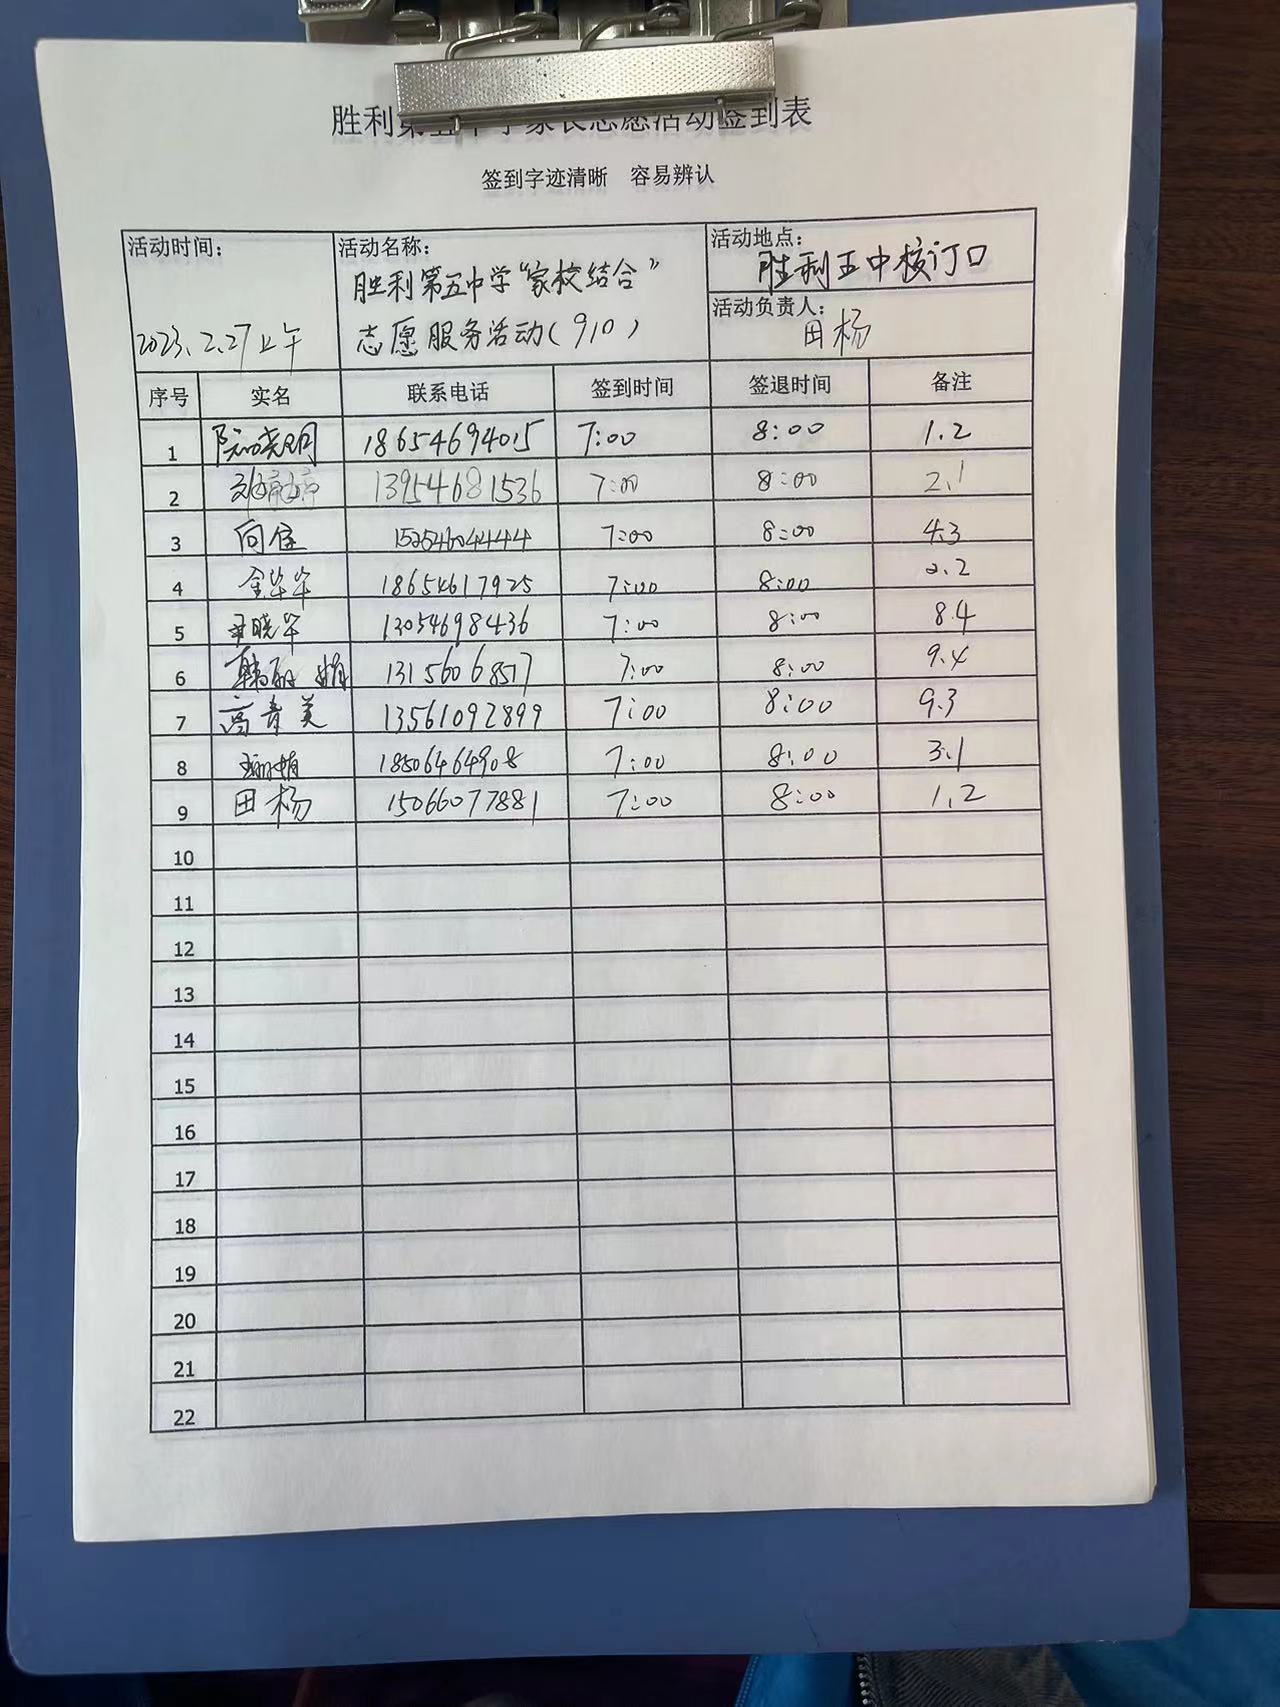 胜利第五中学家长志愿活动签到表
签到字迹清晰 容易辨认
活动时间: 2023.2.27上午
活动名称: 胜利第五中学“家校结合”
志愿服务活动(910)
活动地点: 胜利五中校门口
活动负责人: 田杨
序号 实名 联系电话 签到时间 签退时间 备注
1 陈晓明 18654694015 7:00 8:00 1.2
2 13954681536 7:00 8:00 2.1
3 向佳 15254604444 7:00 8:00 4.3
4 金华华 18654617925 7:00 8:00 2.2
5 尹晓华 13054698436 7:00 8:00 8.4
6 韩丽娟 13156068517 7:00 8:00 9.4
7 高青美 13561092899 7:00 8:00 9.3
8 18506464908 7:00 8:00 3.1
9 田杨 15066077881 7:00 8:00 1.2
10
11
12
13
14
15
16
17
18
19
20
21
22